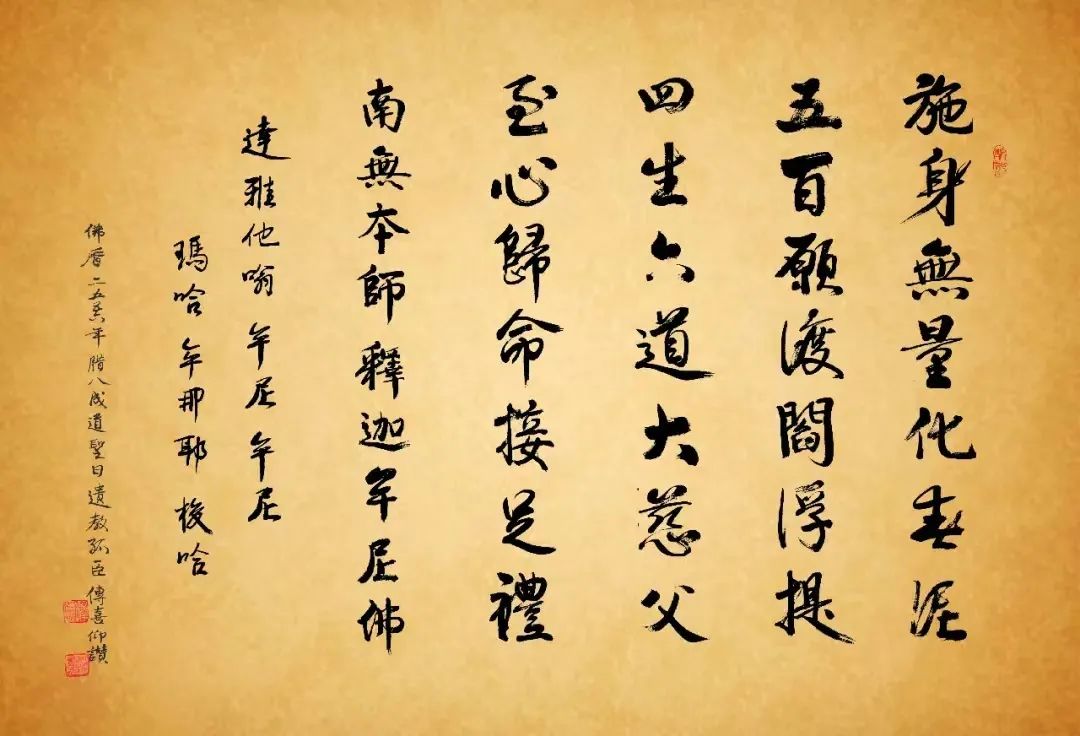 施身無量化春泥
五百願渡閻浮提
四生六道大慈父
至心歸命接足禮
南無本師釋迦牟尼佛
達雅他嗡牟尼牟尼
瑪哈牟那耶梭哈
佛曆二五五六年腊八成道聖日遺教孤臣傳喜仰讚